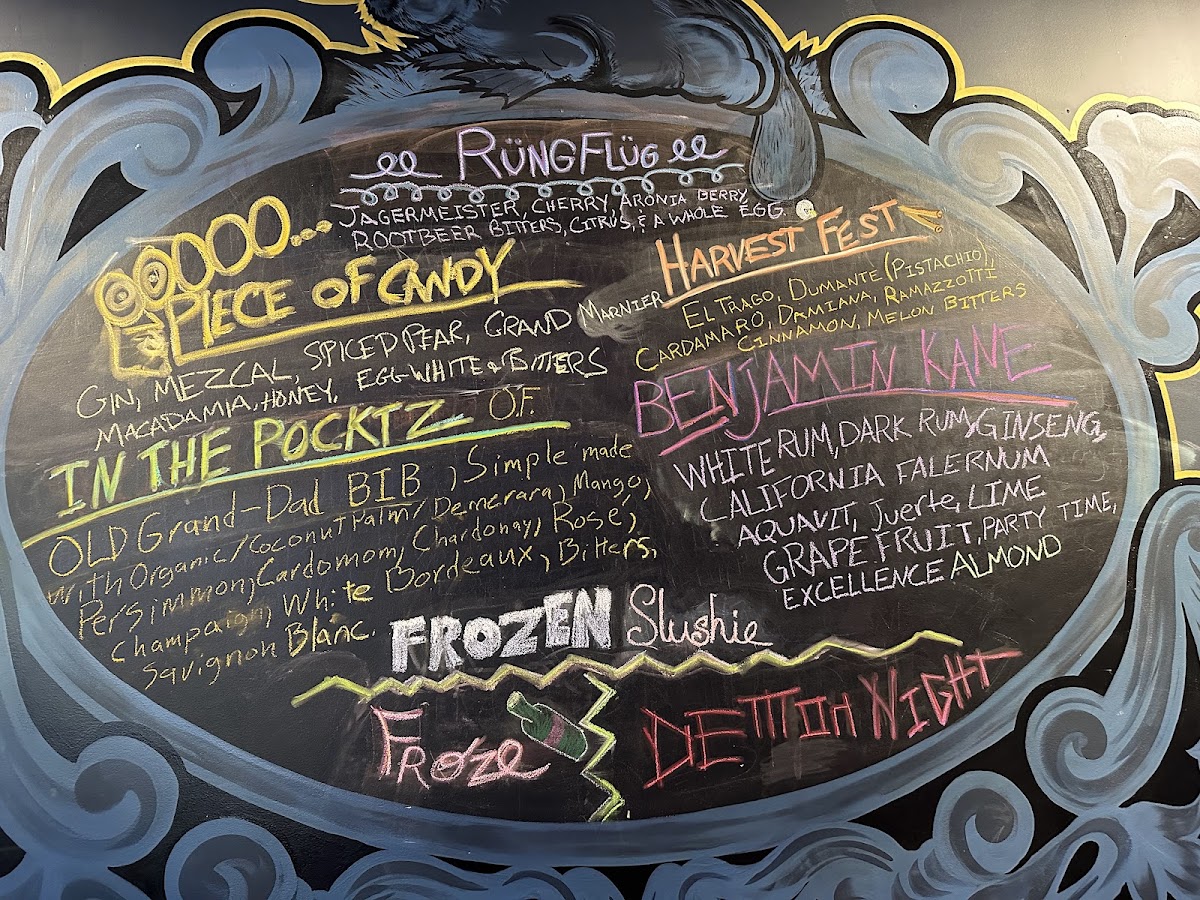 RÜNGFLÜG
JAGERMEISTER, CHERRY, ARONIA BERRY,
ROOTBEER BITTERS, CITRUS, & A WHOLE EGG.
OOOOO...
PIECE OF CANDY
GIN, MEZCAL, SPICED PEAR, GRAND MARNIER
MACADAMIA, HONEY, EGG-WHITE & BITTERS
IN THE POCKTZ O.F.
OLD Grand-Dad BIB, Simple made
with Organic/Coconut Palm/Demerara, Mango,
Persimmon, Cardomom, Chardonay, Rosé,
Champaign, White Bordeaux, Bitters,
Savignon Blanc.
HARVEST FEST
EL TRAGO, DUMANTE (PISTACHIO),
CARDAMARO, DAMIANA, RAMAZZOTTI
CINNAMON, MELON BITTERS
BENJAMIN KANE
WHITE RUM, DARK RUM, GINSENG,
CALIFORNIA FALERNUM
AQUAVIT, Juerte, LIME
GRAPEFRUIT, PARTY TIME,
EXCELLENCE ALMOND
FROZEN Slushie
FRoze
DEMON NIGHT